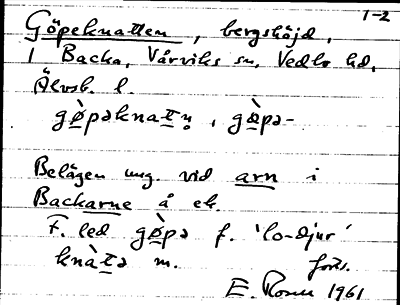 1-2
Göpeknatten, bergshöjd,
1 Backa, Vårviks sn, Vedbo hd,
Älvsb. l.
gø̀pəknatn̥, gø̀pə-
Belägen ung. vid arn i
Backarne å ek.
F. led gø̀pə f. 'lo-djur'
knàtə m.
forts.
E. Rosm 1961